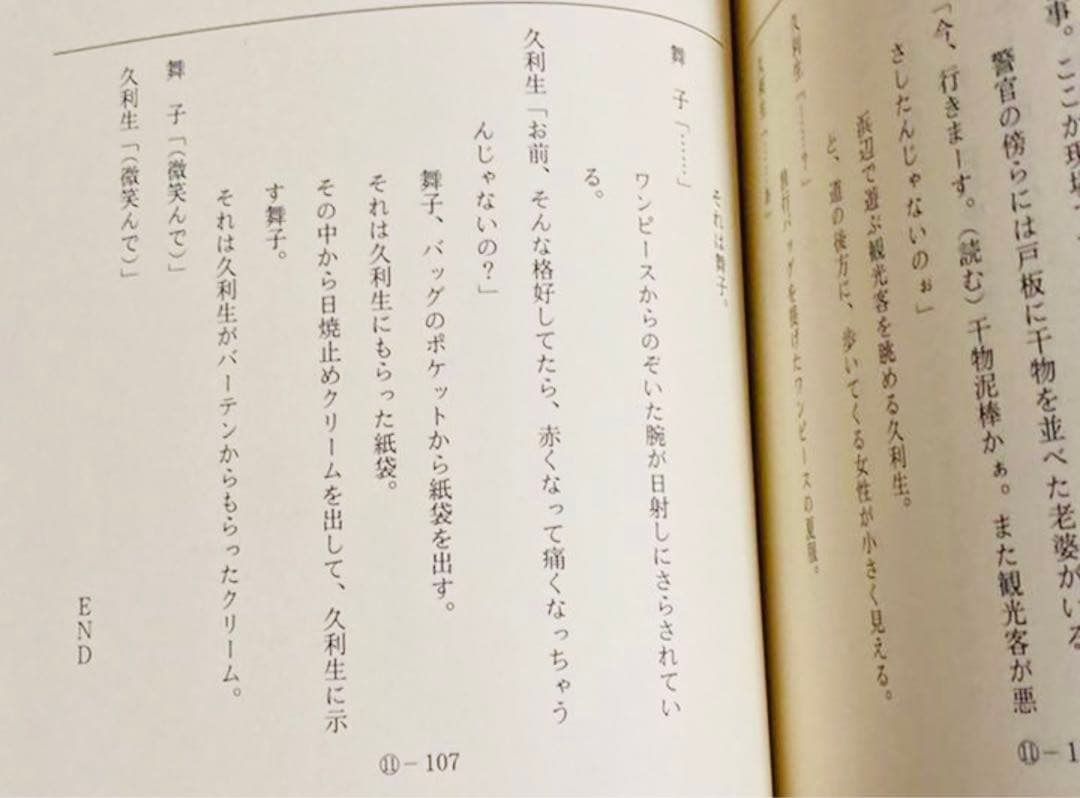 事。ここが現場
警官の傍らには戸板に干物を並べた老婆がいる
「今、行きまーす。（読む）干物泥棒かぁ。また観光客が悪
さしたんじゃないのぉ」
浜辺で遊ぶ観光客を眺める久利生。
と、道の後方に、歩いてくる女性が小さく見える。
久利生「……？」
旅行バッグを提げたワンピースの夏服。
それは舞子。
舞　子「……」
ワンピースからのぞいた腕が日射しにさらされてい
る。
久利生「お前、そんな格好してたら、赤くなって痛くなっちゃう
んじゃないの？」
舞子、バッグのポケットから紙袋を出す。
それは久利生にもらった紙袋。
その中から日焼止めクリームを出して、久利生に示
す舞子。
それは久利生がバーテンからもらったクリーム。
舞　子「（微笑んで）」
久利生「（微笑んで）」
END
⑪－107
⑪－1